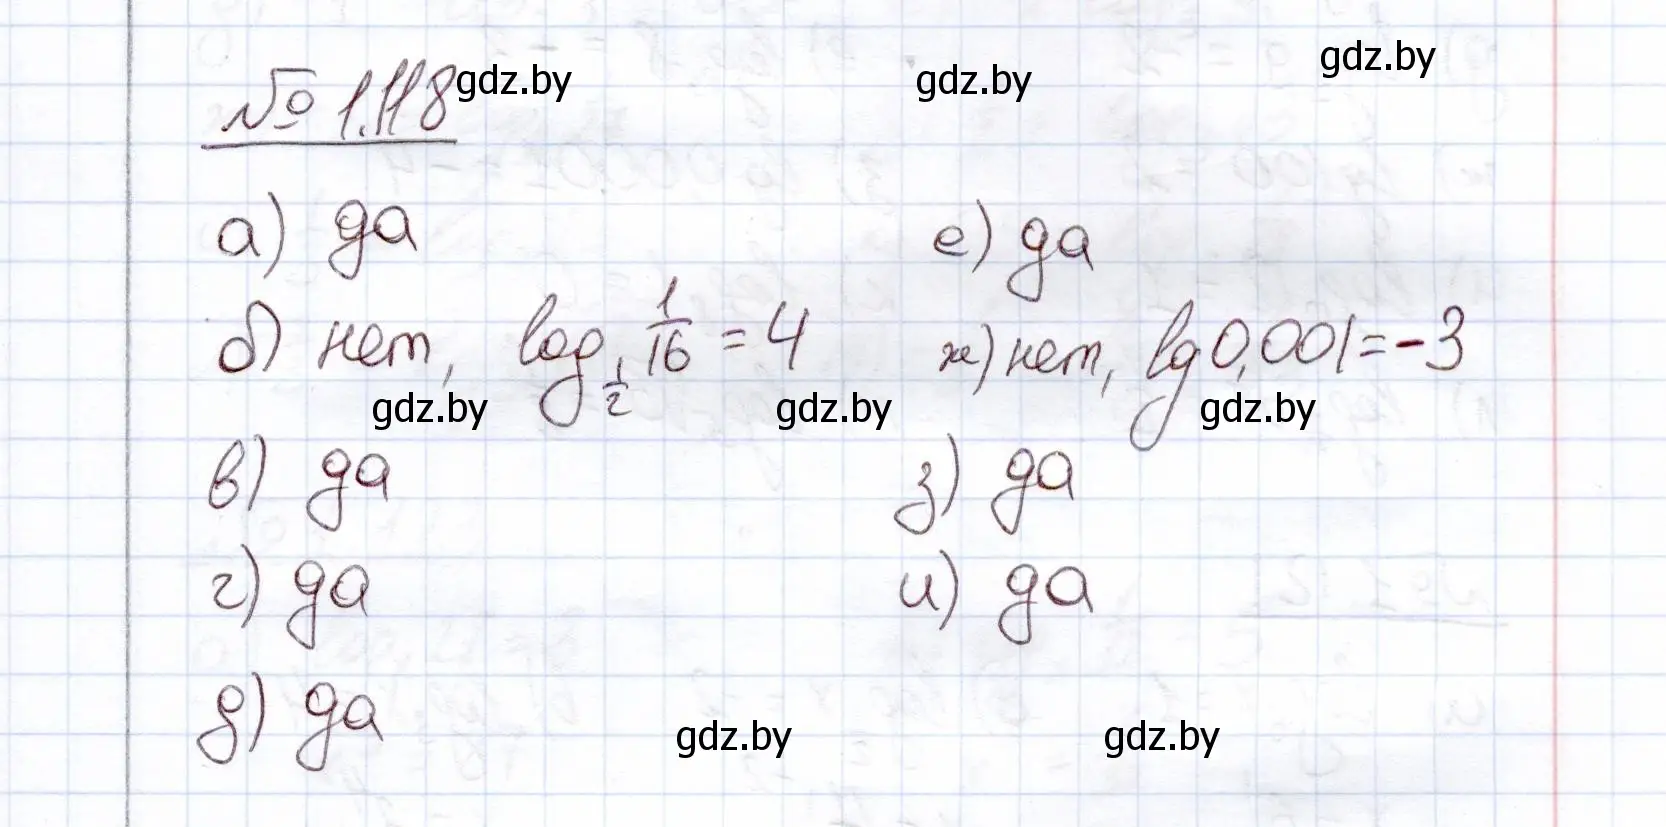 № 1.118 gdz.by gdz.by gdz.by
а) да
б) нет, log_{1/2} 1/16 = 4
gdz.by gdz.by
в) да
г) да
д) да
gdz.by
е) да
ж) нет, lg 0,001 = -3
gdz.by
з) да
и) да
gdz.by